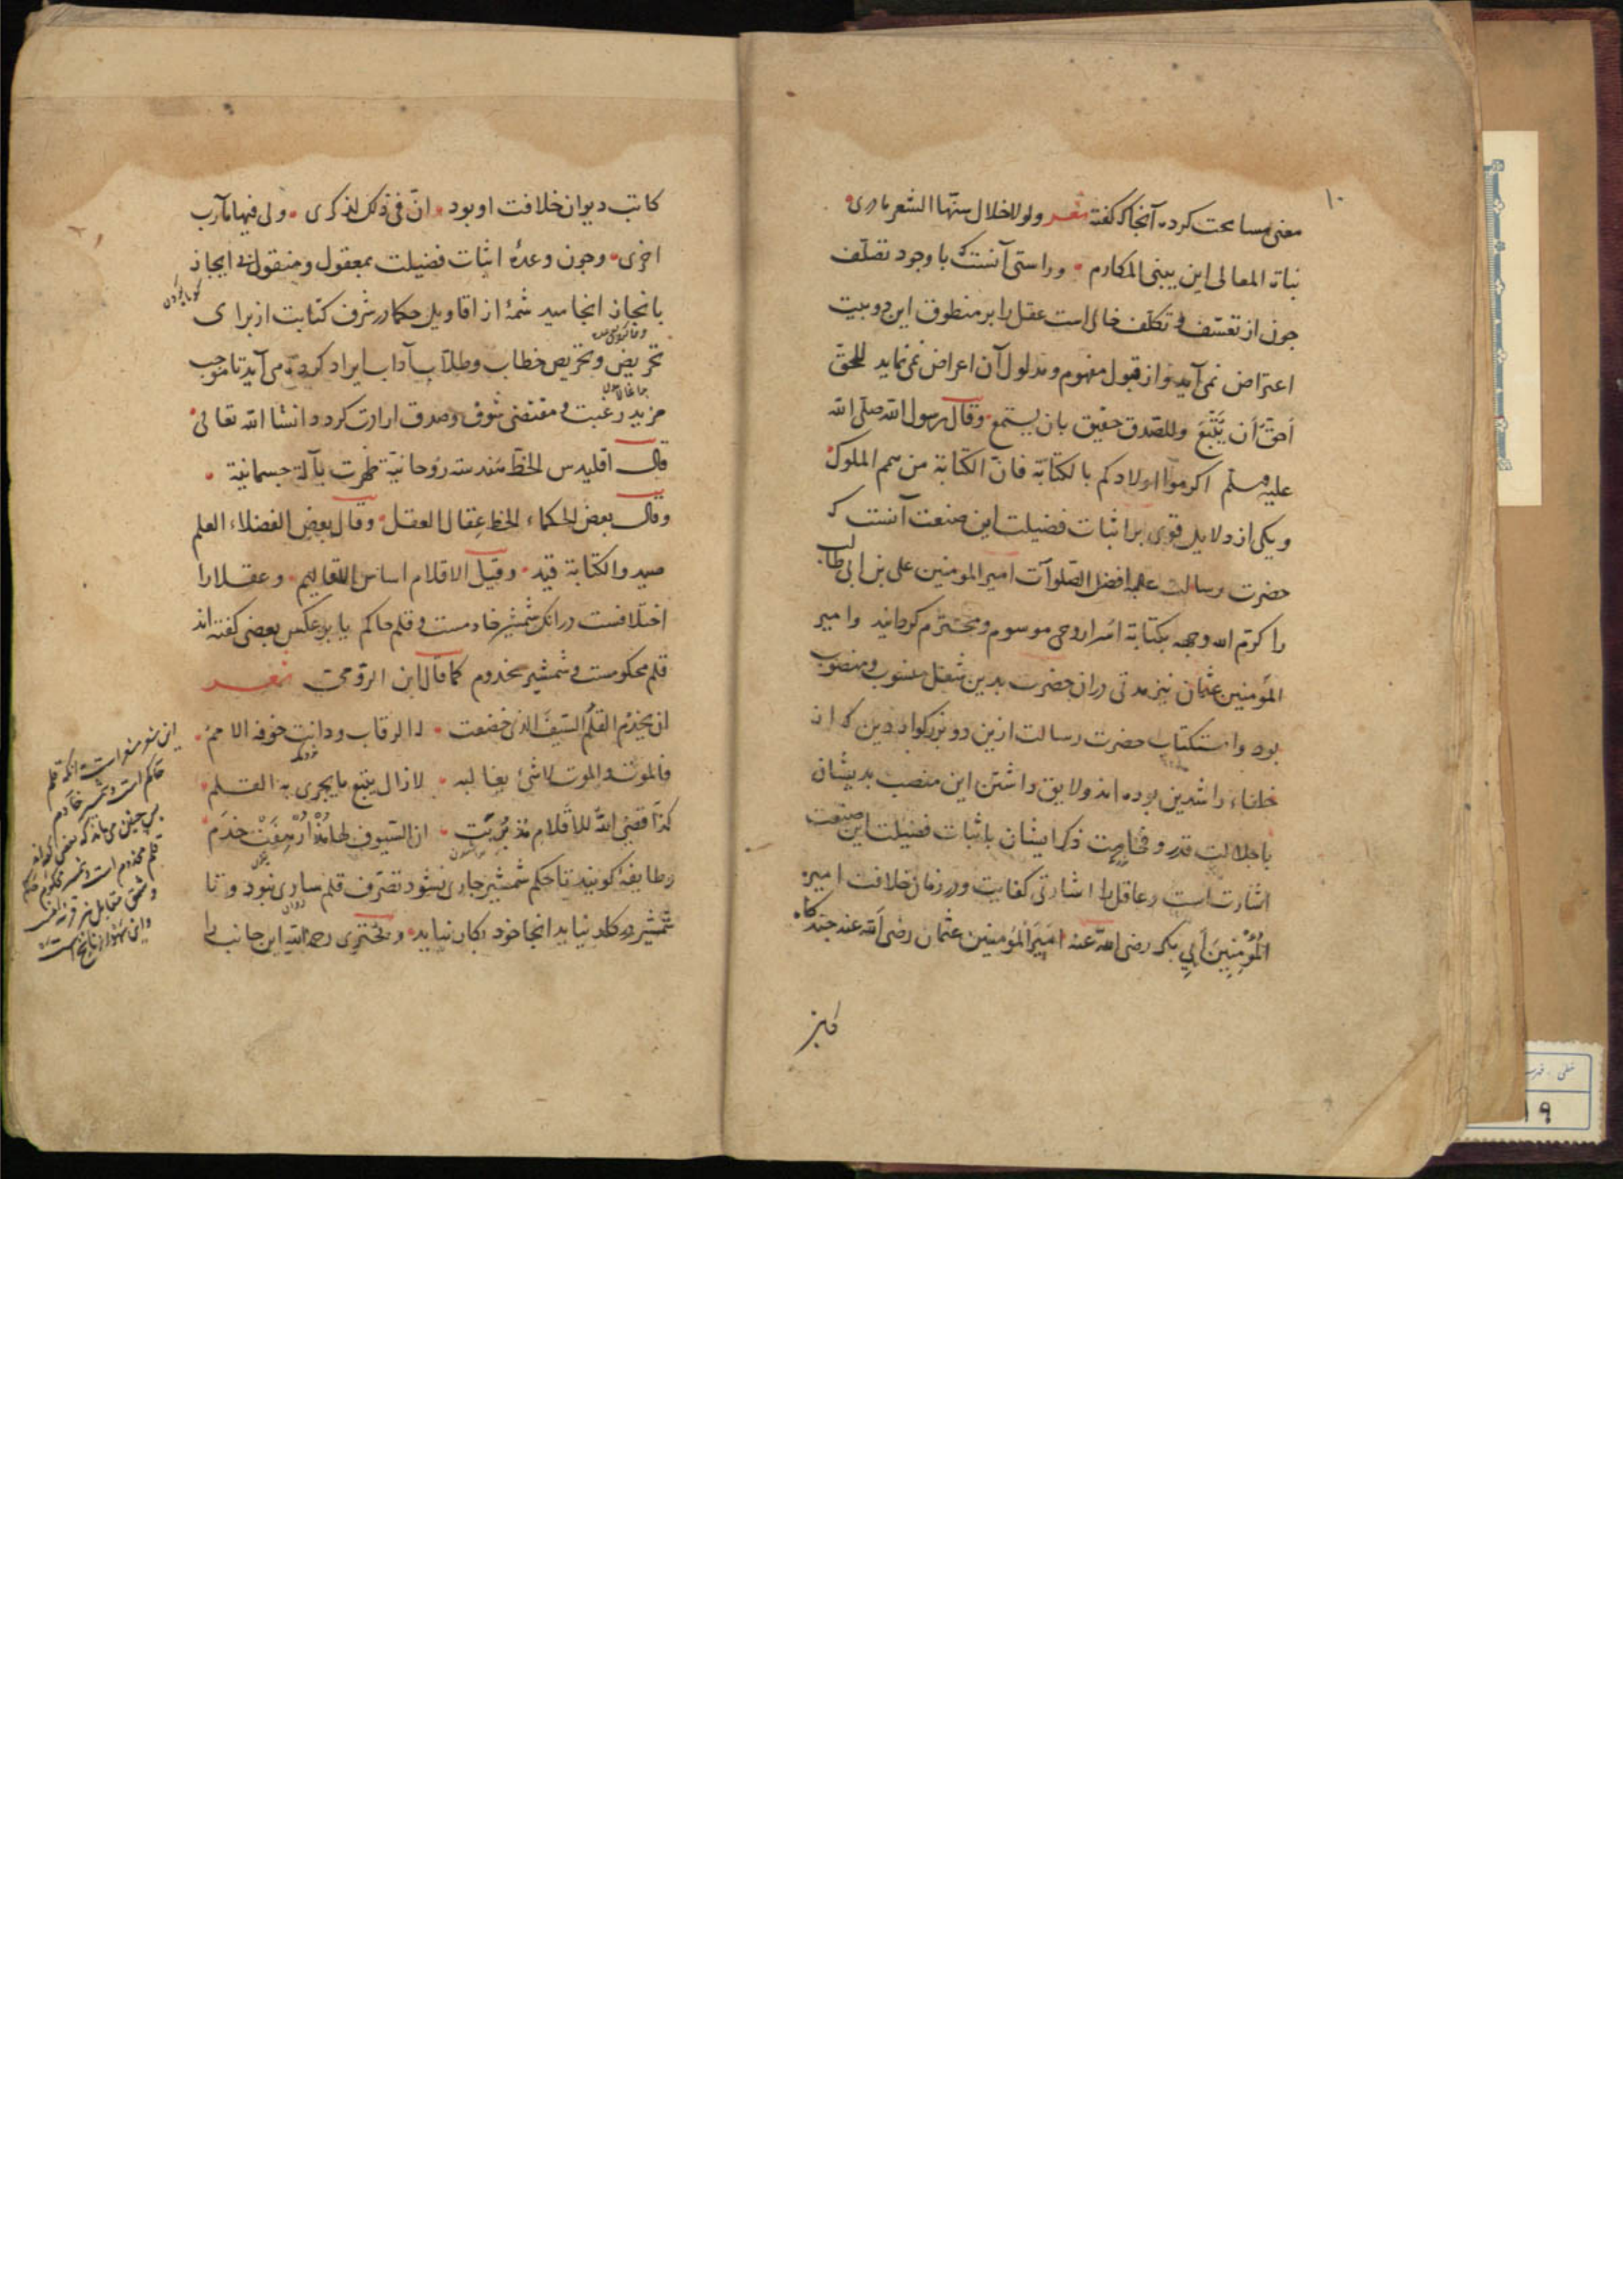 ۱۰
معنی مسامحت کرده آنجا که گفته شعر ولولا خلال سنّها الشعر مادری
بناة المعالی این یبنی المکارم و راستی آنست که با وجود تصلّف
چون از تعسّف و تکلّف خالی است عقل را بر منطوق این دو بیت
اعتراض نمی آید و از قبول مفهوم و مدلول آن اعراض نمی نماید للحقّ
أحقّ أن یُتّبَع وللصّدق حقیق بان یستمع وقال رسول الله صلی الله
علیه وسلم اکرموا اولادکم بالکتابة فانّ الکتابة من همم الملوک
و یکی از دلایل قوی بر اثبات فضیلت این صنعت آنست که
حضرت رسالت علیه افضل الصّلوات امیر المومنین علی بن ابی طالب
را کرّم الله وجهه بکتابة اسرار وحی موسوم و محترم گردانید و امیر
المؤمنین عثمان نیز مدتی در ان حضرت بدین شغل منسوب و منصوب
بود و استکتاب حضرت رسالت ازین دو بزرکوار دین که از
خلفاء راشدین بوده اند ولایق داشتن این منصب بدیشان
با جلالت قدر و فخامت ذکر ایشان باثبات فضیلت این صنعت
اشارت است و عاقل را اشارتی کفایت و در زمان خلافت امیر
المؤمنین أبی بکر رضی الله عنه امیر المؤمنین عثمان رضی الله عنه چند گاه
کاتب دیوان خلافت او بود انّ فی ذلک لذکری ولی فیها مآرب
اخری و چون وعدهٔ اثبات فضیلت بمعقول و منقول در ایجاز
بانجاز انجامید شمهٔ از اقاویل حکما در شرف کتابت از برای
تحریض و تحریص خطاب وطلّاب آداب ایراد کرده می آید تا موجب
مزید رغبت و مقتضی شوق و صدق ارادت کردد انشا الله تعالی
قال اقلیدس الخطّ هندسة روحانیّة ظهرت بآلة جسمانیة
وقال بعض الحکماء الخط عقال العقل وقال بعض الفضلاء العلم
صید والکتابة قید وقیل الاقلام اساس الاقالیم و عقلا را
اختلافست در انک شمشیر خادمست و قلم حاکم یا بر عکس بعضی کفته اند
قلم محکومست و شمشیر مخدوم کما قال ابن الرّومی شعر
ان یخدم القلمُ السّیفَ الذی خضعت له الرقاب ودانت خوفه الامم
فالموت والموت لا شیء یغالبه لازال یتبع ما یجری به القلم
کذا قضی الله للأقلام مذ بُریت ان السّیوف لها مُذْ اُرْهِفَتْ خدَم
و طایفهٔ کویند تا حکم شمشیر جاری نشود تصرّف قلم ساری نبود و تا
شمشیر در کار نیاید انجا خود بکار نیاید و بحتری رحمه الله این جانب را
این شعر مشعر است بانکه قلم
حاکم است و شمشیر خادم